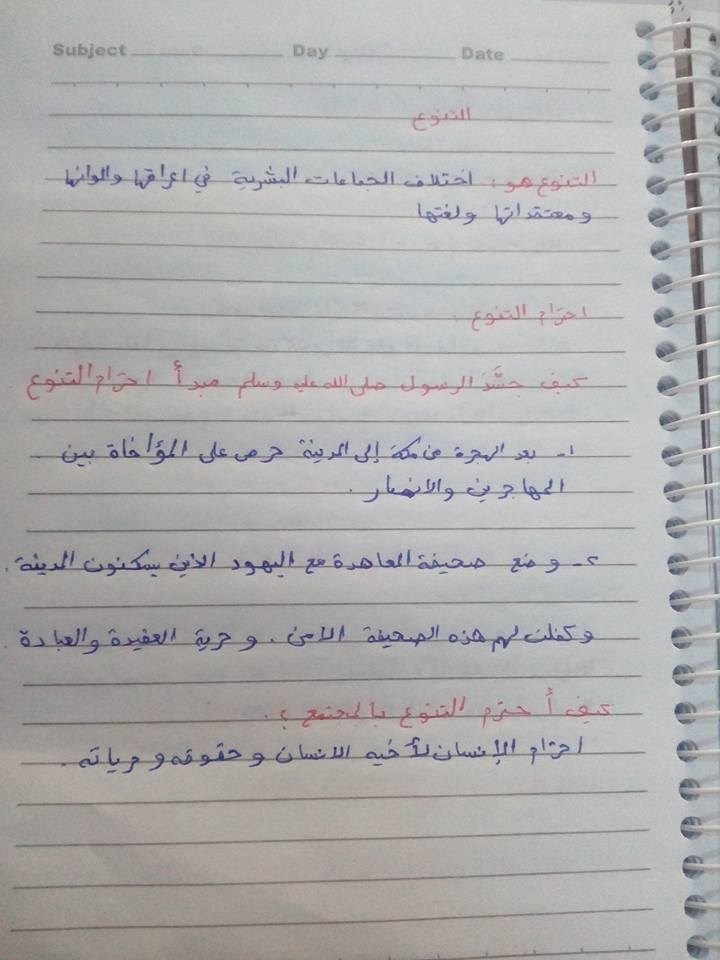 Subject Day Date
التنوع
التنوع هو: اختلاف الجماعات البشرية في اعراقها والوانها
ومعتقداتها ولغتها
احترام التنوع:
كيف جسَّد الرسول صلى الله عليه وسلم مبدأ احترام التنوع
١- بعد الهجرة من مكة إلى المدينة حرص على المؤاخاة بين
المهاجرين والانصار.
٢- وضع صحيفة المعاهدة مع اليهود الذين يسكنون المدينة.
وكفلت لهم هذه الصحيفة الأمن. وحرية العقيدة والعبادة.
كيف أحترم التنوع بالمجتمع؟.
احترام الإنسان لأخيه الانسان وحقوقه وحرياته.